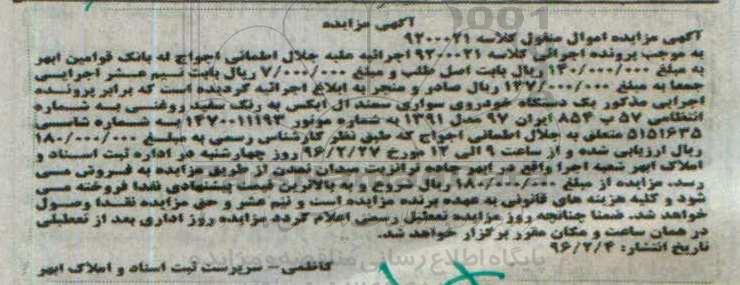 آگهی مزایده
آگهی مزایده اموال منقول کلاسه ۹۲۰۰۰۲۱
به موجب پرونده اجرائی کلاسه ۹۲۰۰۰۲۱ اجرائیه علیه جلال اطمانی اجواج له بانک قوامین ابهر
به مبلغ ۱۴۰/۰۰۰/۰۰۰ ریال بابت اصل طلب و مبلغ ۷/۰۰۰/۰۰۰ ریال بابت نیم عشر اجرایی
جمعا به مبلغ ۱۴۷/۰۰۰/۰۰۰ ریال صادر و منجر به ابلاغ اجرائیه گردیده است که برابر پرونده
اجرایی مذکور یک دستگاه خودروی سواری سمند ال ایکس به رنگ سفید روغنی به شماره
انتظامی ۵۷ ب ۸۵۴ ایران ۹۷ مدل ۱۳۹۱ به شماره موتور ۱۴۷۰۰۱۱۱۹۳ به شماره شاسی
۵۱۵۱۶۳۵ متعلق به جلال اطمانی اجواج که طبق نظر کارشناس رسمی به مبلغ ۱۸۰/۰۰۰/۰۰۰
ریال ارزیابی شده و از ساعت ۹ الی ۱۲ مورخ ۹۶/۲/۲۷ روز چهارشنبه در اداره ثبت اسناد و
املاک ابهر شعبه اجرا واقع در ابهر جاده ترانزیت میدان تمدن از طریق مزایده به فروش می
رسد. مزایده از مبلغ ۱۸۰/۰۰۰/۰۰۰ ریال شروع و به بالاترین قیمت پیشنهادی نقدا فروخته می
شود و کلیه هزینه های قانونی به عهده برنده مزایده است و نیم عشر و حق مزایده نقدا وصول
خواهد شد. ضمنا چنانچه روز مزایده تعطیل رسمی اعلام گردد مزایده روز اداری بعد از تعطیلی
در همان ساعت و مکان مقرر برگزار خواهد شد.
تاریخ انتشار: ۹۶/۲/۴
کاظمی – سرپرست ثبت اسناد و املاک ابهر
پایگاه اطلاع رسانی مناقصه و مزایده